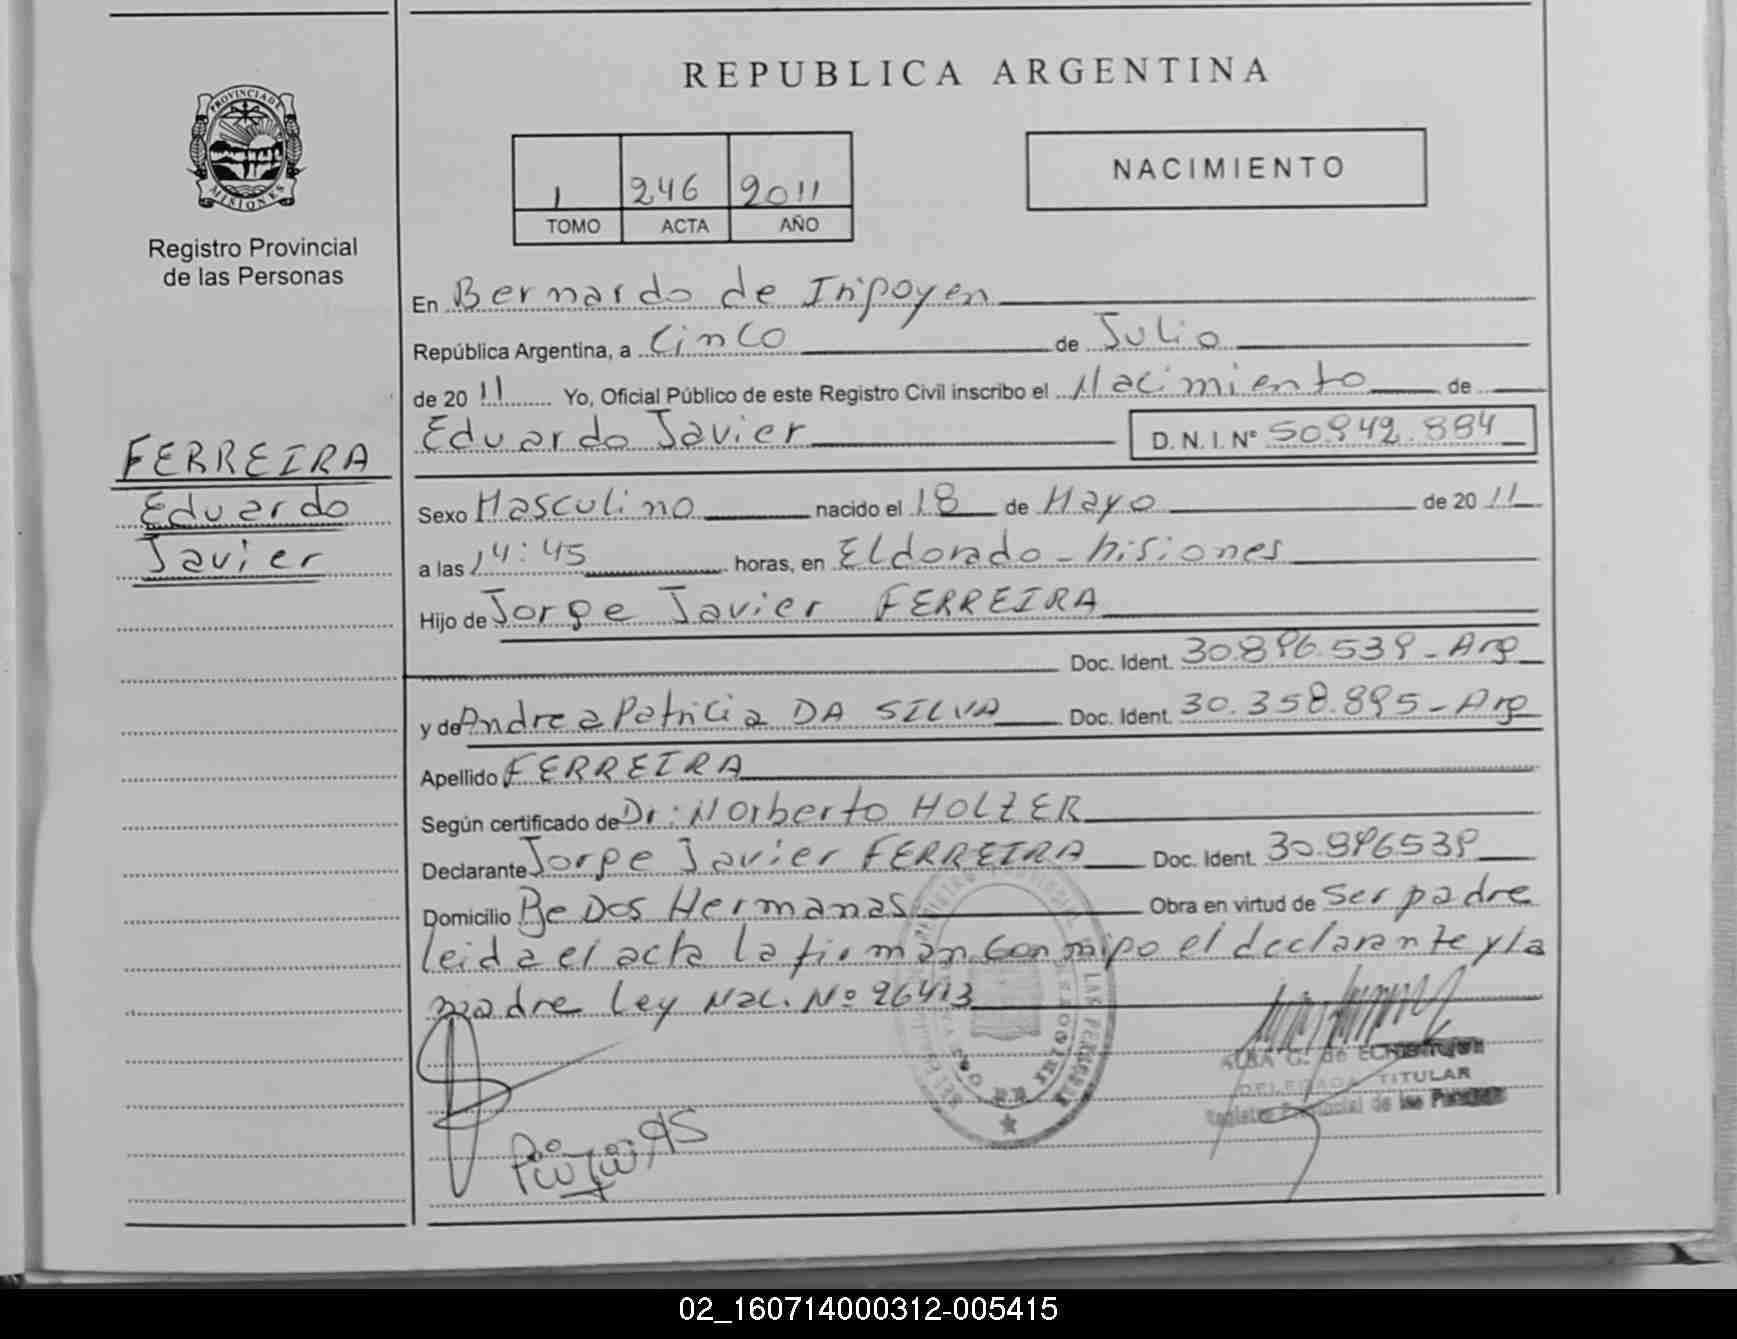 REPUBLICA ARGENTINA
PROVINCIA DE
MISIONES
Registro Provincial
de las Personas
1 246 2011
TOMO ACTA AÑO
NACIMIENTO
En Bernardo de Irigoyen
República Argentina, a Cinco de Julio
de 2011 Yo, Oficial Público de este Registro Civil inscribo el Nacimiento de
Eduardo Javier D.N.I. Nº 50.942.884
FERREIRA
Eduardo
Javier
Sexo Masculino nacido el 18 de Mayo de 2011
a las 14:45 horas, en Eldorado - Misiones
Hijo de Jorge Javier FERREIRA
Doc. Ident. 30.896.539 - Arg
y de Andrea Patricia DA SILVA Doc. Ident. 30.358.895 - Arg
Apellido FERREIRA
Según certificado de Dr: Norberto HOLZER
Declarante Jorge Javier FERREIRA Doc. Ident. 30.896539
Domicilio Bº Dos Hermanas Obra en virtud de Ser padre
leida el acta la firman Conmigo el declarante y la
madre Ley Nac. Nº 26413
ALBA G. de
DELEGADA TITULAR
Registro Provincial de las Personas
02_160714000312-005415